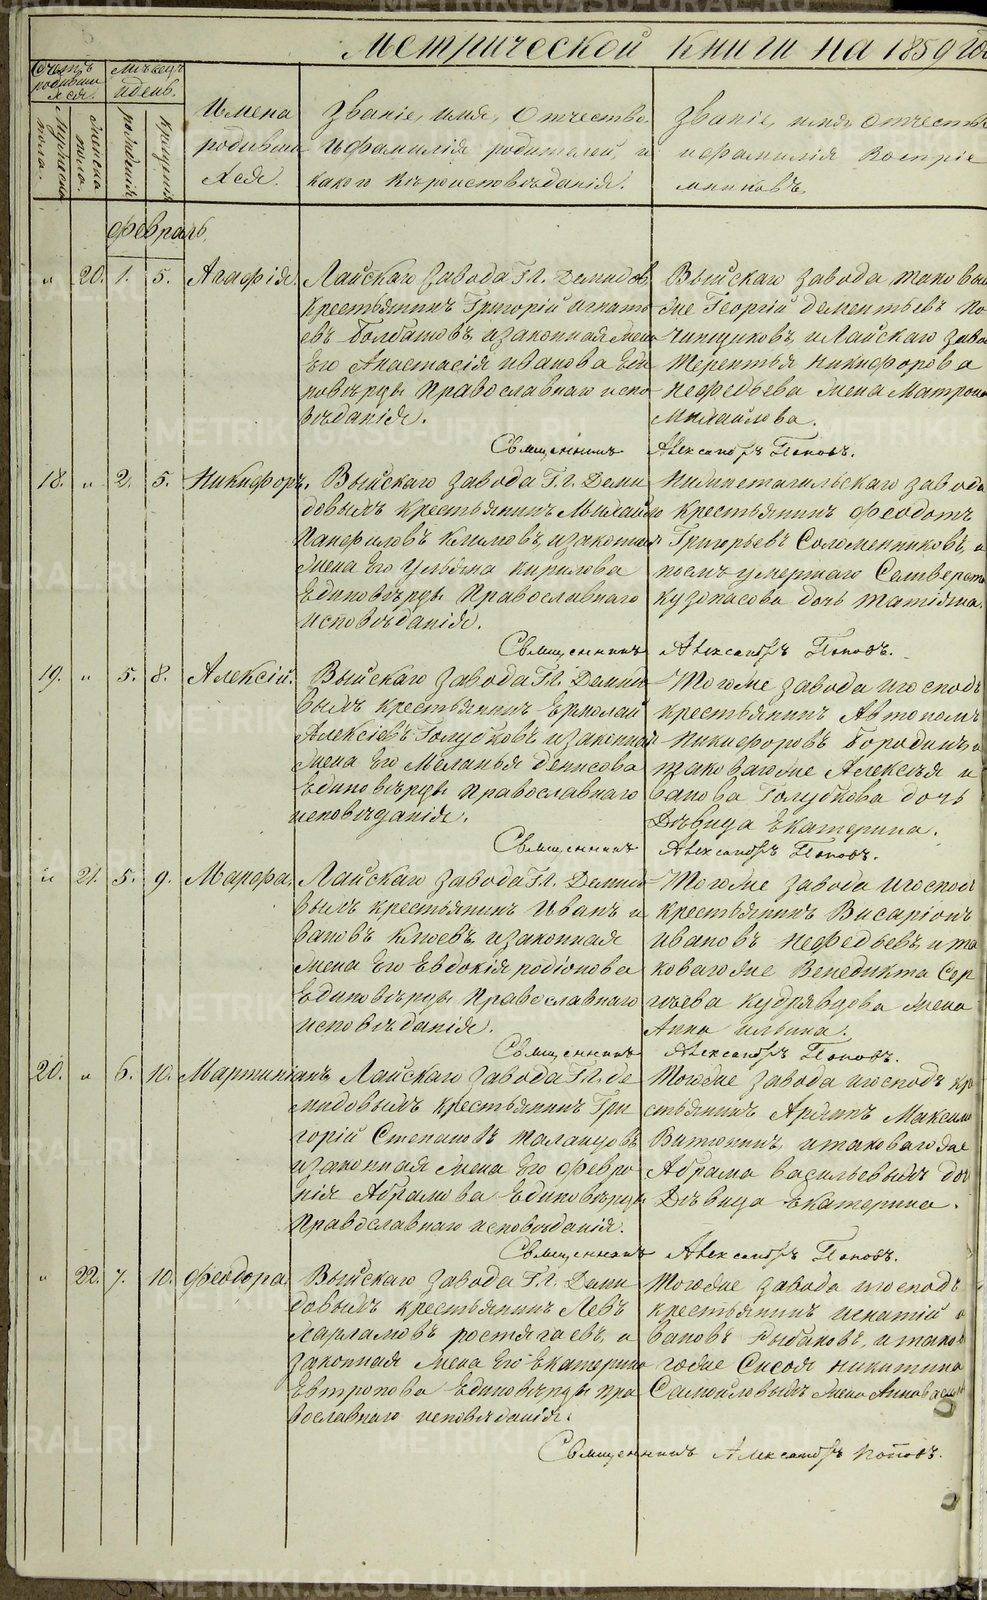 Метрической книги на 1859 го
Счетъ родившихся.
Мѣсяцъ и день.
Мужеска пола.
Женска пола.
рожденія
крещенія
Имена родившихся.
Званіе, имя, отчество и фамилія родителей, и какого вѣроисповѣданія.
Званіе, имя отчество и фамилія воспріемниковъ.
Февраль.
„ 20. 1. 5. Агафія.
Лайскаго завода Г.г. Демидов
крестьянинъ Григорій Игнать
евъ Болбашовъ, и законная жена
Его Анастасія Иванова Еди
новѣрцы Православнаго испо
вѣданія.
Выйскаго завода таковы
же Георгій Дементьевъ По
чинщиковъ, и Лайскаго заво
Терентья Никифорова
Нефедьева жена Матрона
Михайлова.
Священникъ Александръ Поповъ.
18. „ 2. 5. Никифоръ.
Выйскаго завода Г.г. Деми
довымъ крестьянинъ Михаило
Панфиловъ Климовъ, и законная
жена Его Ульяна Кирилова
Единовѣрцы Православнаго
исповѣданія.
Нижнетагильскаго завода
крестьянинъ Феодотъ
Григорьевъ Соломенниковъ, и
послѣ умершаго Селиверста
дочь Татіяна.
Священникъ Александръ Поповъ.
19. „ 5. 8. Алексій.
Выйскаго завода Г.г. Демидо
вымъ крестьянинъ Ермолай
Алексіевъ Голубковъ и законная
жена Его Меланья Денисова
Единовѣрцы Православнаго
исповѣданія.
Того же завода и господъ
крестьянинъ Автономъ
Никифоровъ Бородинъ, и
таковаго же Алексѣя И
ванова Голубкова дочь
Дѣвица Екатерина.
Священникъ Александръ Поповъ.
„ 21. 5. 9. Марфа.
Лайскаго завода Г.г. Демидо
вымъ крестьянинъ Иванъ И
вановъ Клюевъ, и законная
жена Его Евдокія Родіонова
Единовѣрцы Православнаго
исповѣданія.
Того же завода и господ
крестьянинъ Висаріонъ
Ивановъ Нефедьевъ, и та
коваго же Венедикта Сер
гѣева Кудрявцова жена
Анна Ильина.
Священникъ Александръ Поповъ.
20. „ 6. 10. Мартиніанъ
Лайскаго завода Г.г. Де
мидовымъ крестьянинъ Гри
горій Степановъ Таланцовъ
и законная жена Его Февро
нія Абрамова Единовѣрцы
Православнаго исповѣданія.
Того же завода и господъ кре
стьянинъ Максимо
Витюнинъ, и таковаго же
Абрама Васильевымъ доч
Дѣвица Екатерина.
Священникъ Александръ Поповъ.
„ 22. 7. 10. Феодора.
Выйскаго завода Г.г. Деми
довымъ крестьянинъ Левъ
Харламовъ Ростягаевъ, и
законная жена Его Екатерина
Евтропова Единовѣрцы Пра
вославнаго исповѣданія.
Того же завода и господъ
крестьянинъ Игнатій И
вановъ Рыбаковъ, и таков
го же Сысоя Никитина
Самойловымъ жена Анна
Священникъ Александръ Поповъ.
METRIKI.GASO-URAL.RU